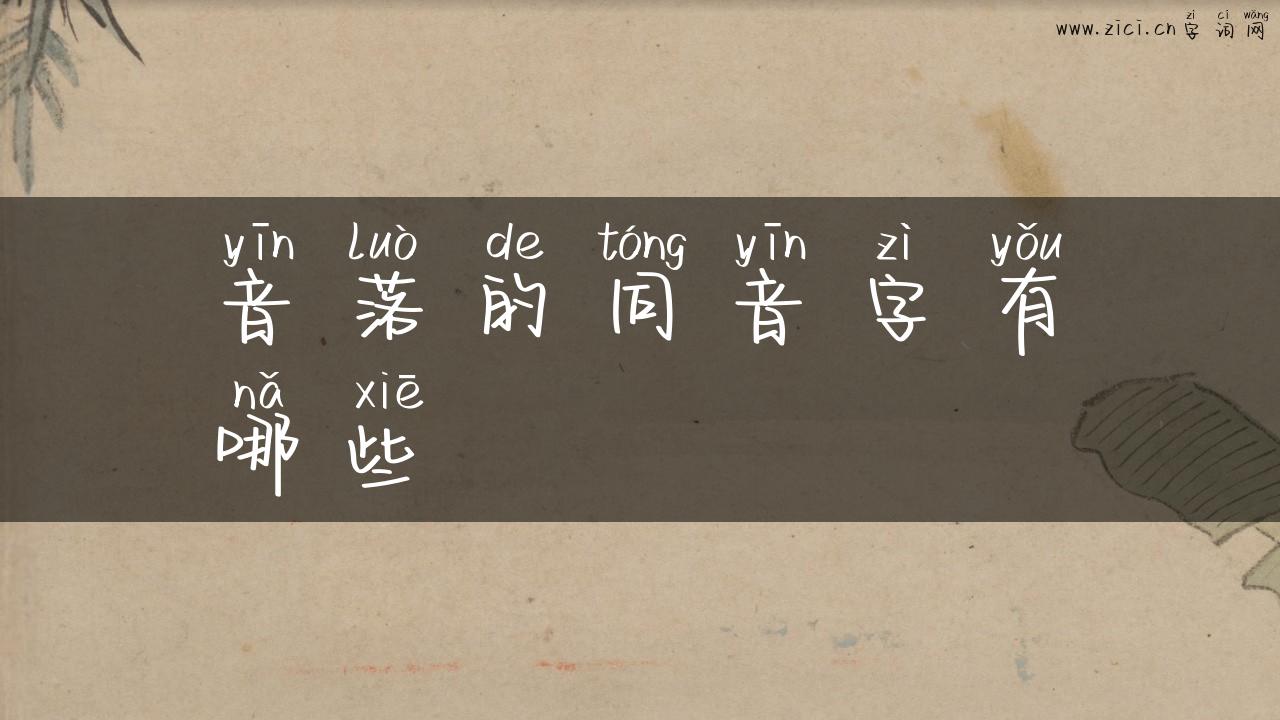 zì cí wǎng
www.zici.cn 字词网
yīn luò de tóng yīn zì yǒu
音落的同音字有
nǎ xiē
哪些